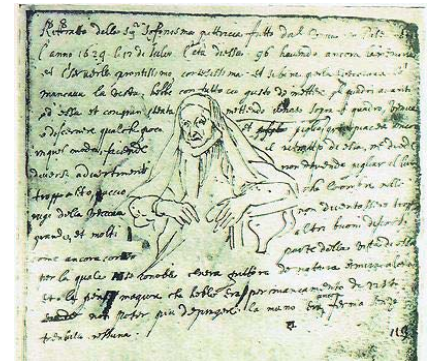 Ritratto della Sig.ra Sofonisma pittricie fatto dal
l'anno 1629 li 12 di Julio l'età di essa 96 havendo ancora la memoria
et cervello prontissimo, cortesissima et sebene per la vecciaia
mancava la vista, hebbe con tutto ciò gusto di mettere gli quadri avanti
ad essa et con gran mettendo il naso sopra il quadro,
a discernere qualch poco et piacer ancora
in quel modo, facendo il ritratto di essa, me diede
diversi advertimenti non dovendo pigliar il lume
troppo alto, acciò che l'ombre nelle
rughe della vecciaia non diventassino troppo
grande, et molti altri buoni
come ancora parte della vita di essa
per la quale conobbe ch'era pittora de natura et
et la pena magiore ch hebbe era per mancamento di vista
non poter più depingere. la mano era ancora ferma senza
nessuna.